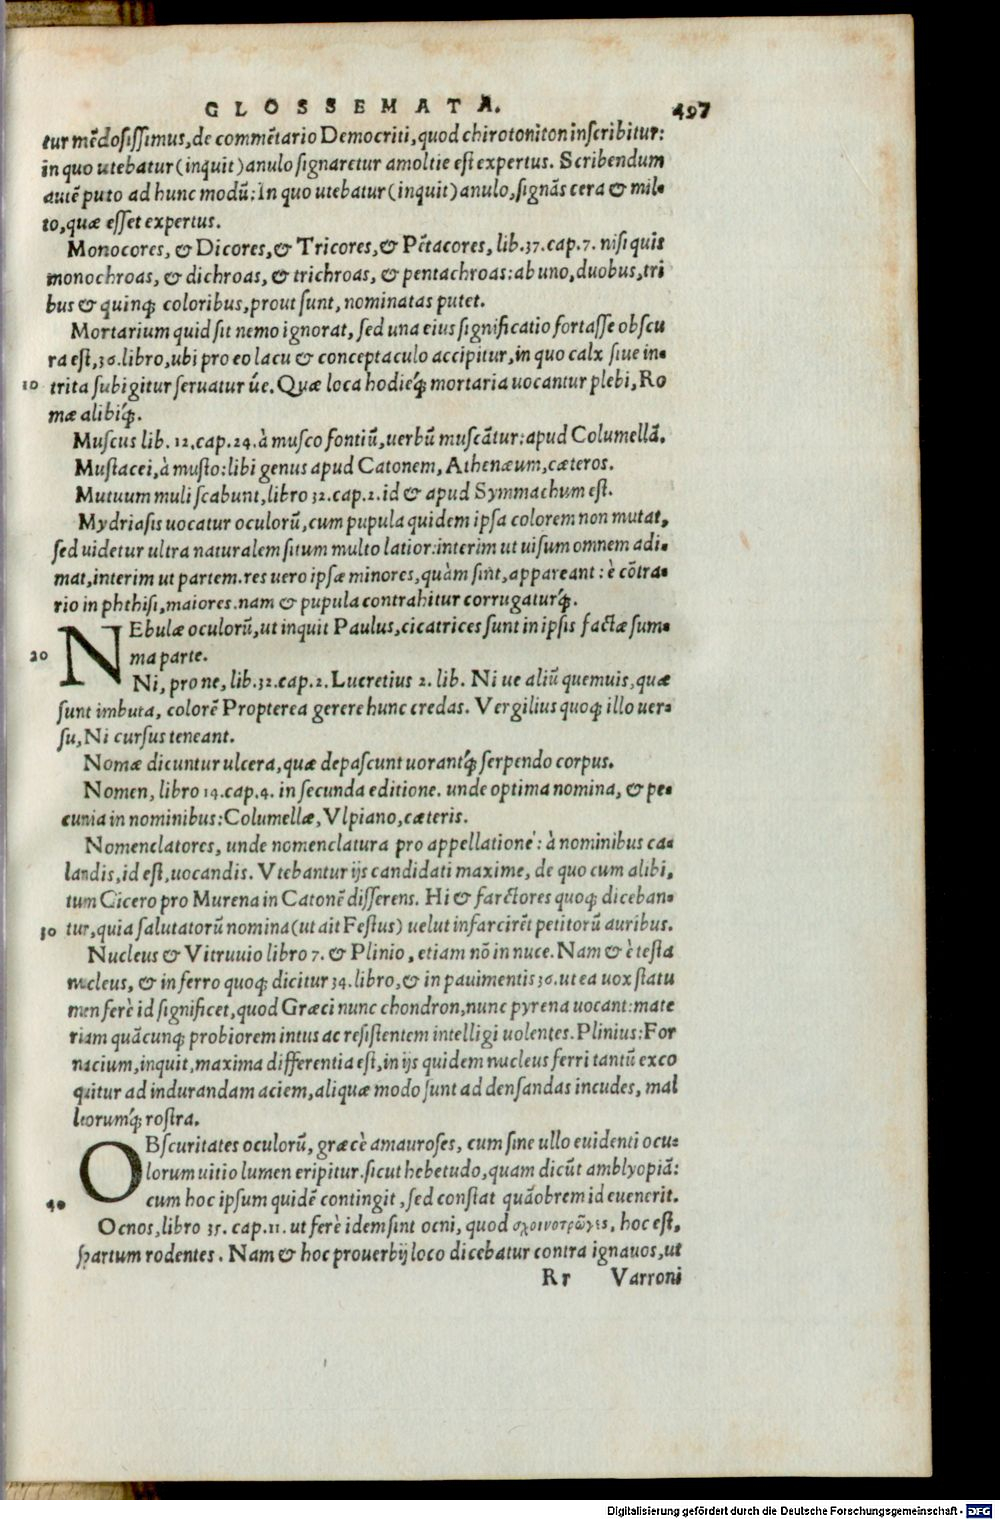 GLOSSEMATA. 497
tur mēdosissimus, de commētario Democriti, quod chirotoniton inscribitur:
in quo utebatur (inquit) anulo signaretur amoltie est expertus. Scribendum
autē puto ad hunc modū: In quo utebatur (inquit) anulo, signās cera & mil-
to, quæ esset expertus.
Monocores, & Dicores, & Tricores, & Pētacores, lib.37.cap.7. nisi quis
monochroas, & dichroas, & trichroas, & pentachroas: ab uno, duobus, tri
bus & quinq; coloribus, prout sunt, nominatas putet.
Mortarium quid sit nemo ignorat, sed una eius significatio fortasse obscu
ra est, 36.libro, ubi pro eo lacu & conceptaculo accipitur, in quo calx siue in-
10 trita subigitur seruatur úe. Quæ loca hodieq́; mortaria uocantur plebi, Ro
mæ alibiq́;.
Muscus lib. 12.cap.24. à musco fontiū, uerbū muscātur: apud Columellā.
Mustacei, à musto: libi genus apud Catonem, Athenæum, cæteros.
Mutuum muli scabunt, libro 32.cap.2. id & apud Symmachum est.
Mydriasis uocatur oculorū, cum pupula quidem ipsa colorem non mutat,
sed uidetur ultra naturalem situm multo latior: interim ut uisum omnem adi-
mat, interim ut partem. res uero ipsæ minores, quàm sint, appareant: è cōtra-
rio in phthisi, maiores. nam & pupula contrahitur corrugaturq́;.
NEbulæ oculorū, ut inquit Paulus, cicatrices sunt in ipsis factæ sum-
20 ma parte.
Ni, pro ne, lib.32.cap.2. Lucretius 2. lib. Ni ue aliū quemuis, quæ
sunt imbuta, colorē Propterea gerere hunc credas. Vergilius quoq; illo uer-
su, Ni cursus teneant.
Nomæ dicuntur ulcera, quæ depascunt uorantq́; serpendo corpus.
Nomen, libro 14.cap.4. in secunda editione. unde optima nomina, & pe-
cunia in nominibus: Columellæ, Vlpiano, cæteris.
Nomenclatores, unde nomenclatura pro appellatione: à nominibus ca-
landis, id est, uocandis. Vtebantur ijs candidati maxime, de quo cum alibi,
tum Cicero pro Murena in Catonē disserens. Hi & farctores quoq; diceban-
30 tur, quia salutatorū nomina (ut ait Festus) uelut infarcirēt petitorū auribus.
Nucleus & Vitruuio libro 7. & Plinio, etiam nō in nuce. Nam & è testa
nucleus, & in ferro quoq; dicitur 34. libro, & in pauimentis 36. ut ea uox statu
men ferè id significet, quod Græci nunc chondron, nunc pyrena uocant: mate
riam quācunq; probiorem intus ac resistentem intelligi uolentes. Plinius: For
nacium, inquit, maxima differentia est, in ijs quidem nucleus ferri tantū exco
quitur ad indurandam aciem, aliquæ modo sunt ad densandas incudes, mal
leorumq́; rostra.
OBscuritates oculorū, græcè amauroses, cum sine ullo euidenti ocu-
lorum uitio lumen eripitur. sicut hebetudo, quam dicūt amblyopiā:
40 cum hoc ipsum quidē contingit, sed constat quāobrem id euenerit.
Ocnos, libro 35. cap.11. ut ferè idem sint ocni, quod σχοινοτρῶγες, hoc est,
spartum rodentes. Nam & hoc prouerbij loco dicebatur contra ignauos, ut
Rr Varroni
Digitalisierung gefördert durch die Deutsche Forschungsgemeinschaft - DFG